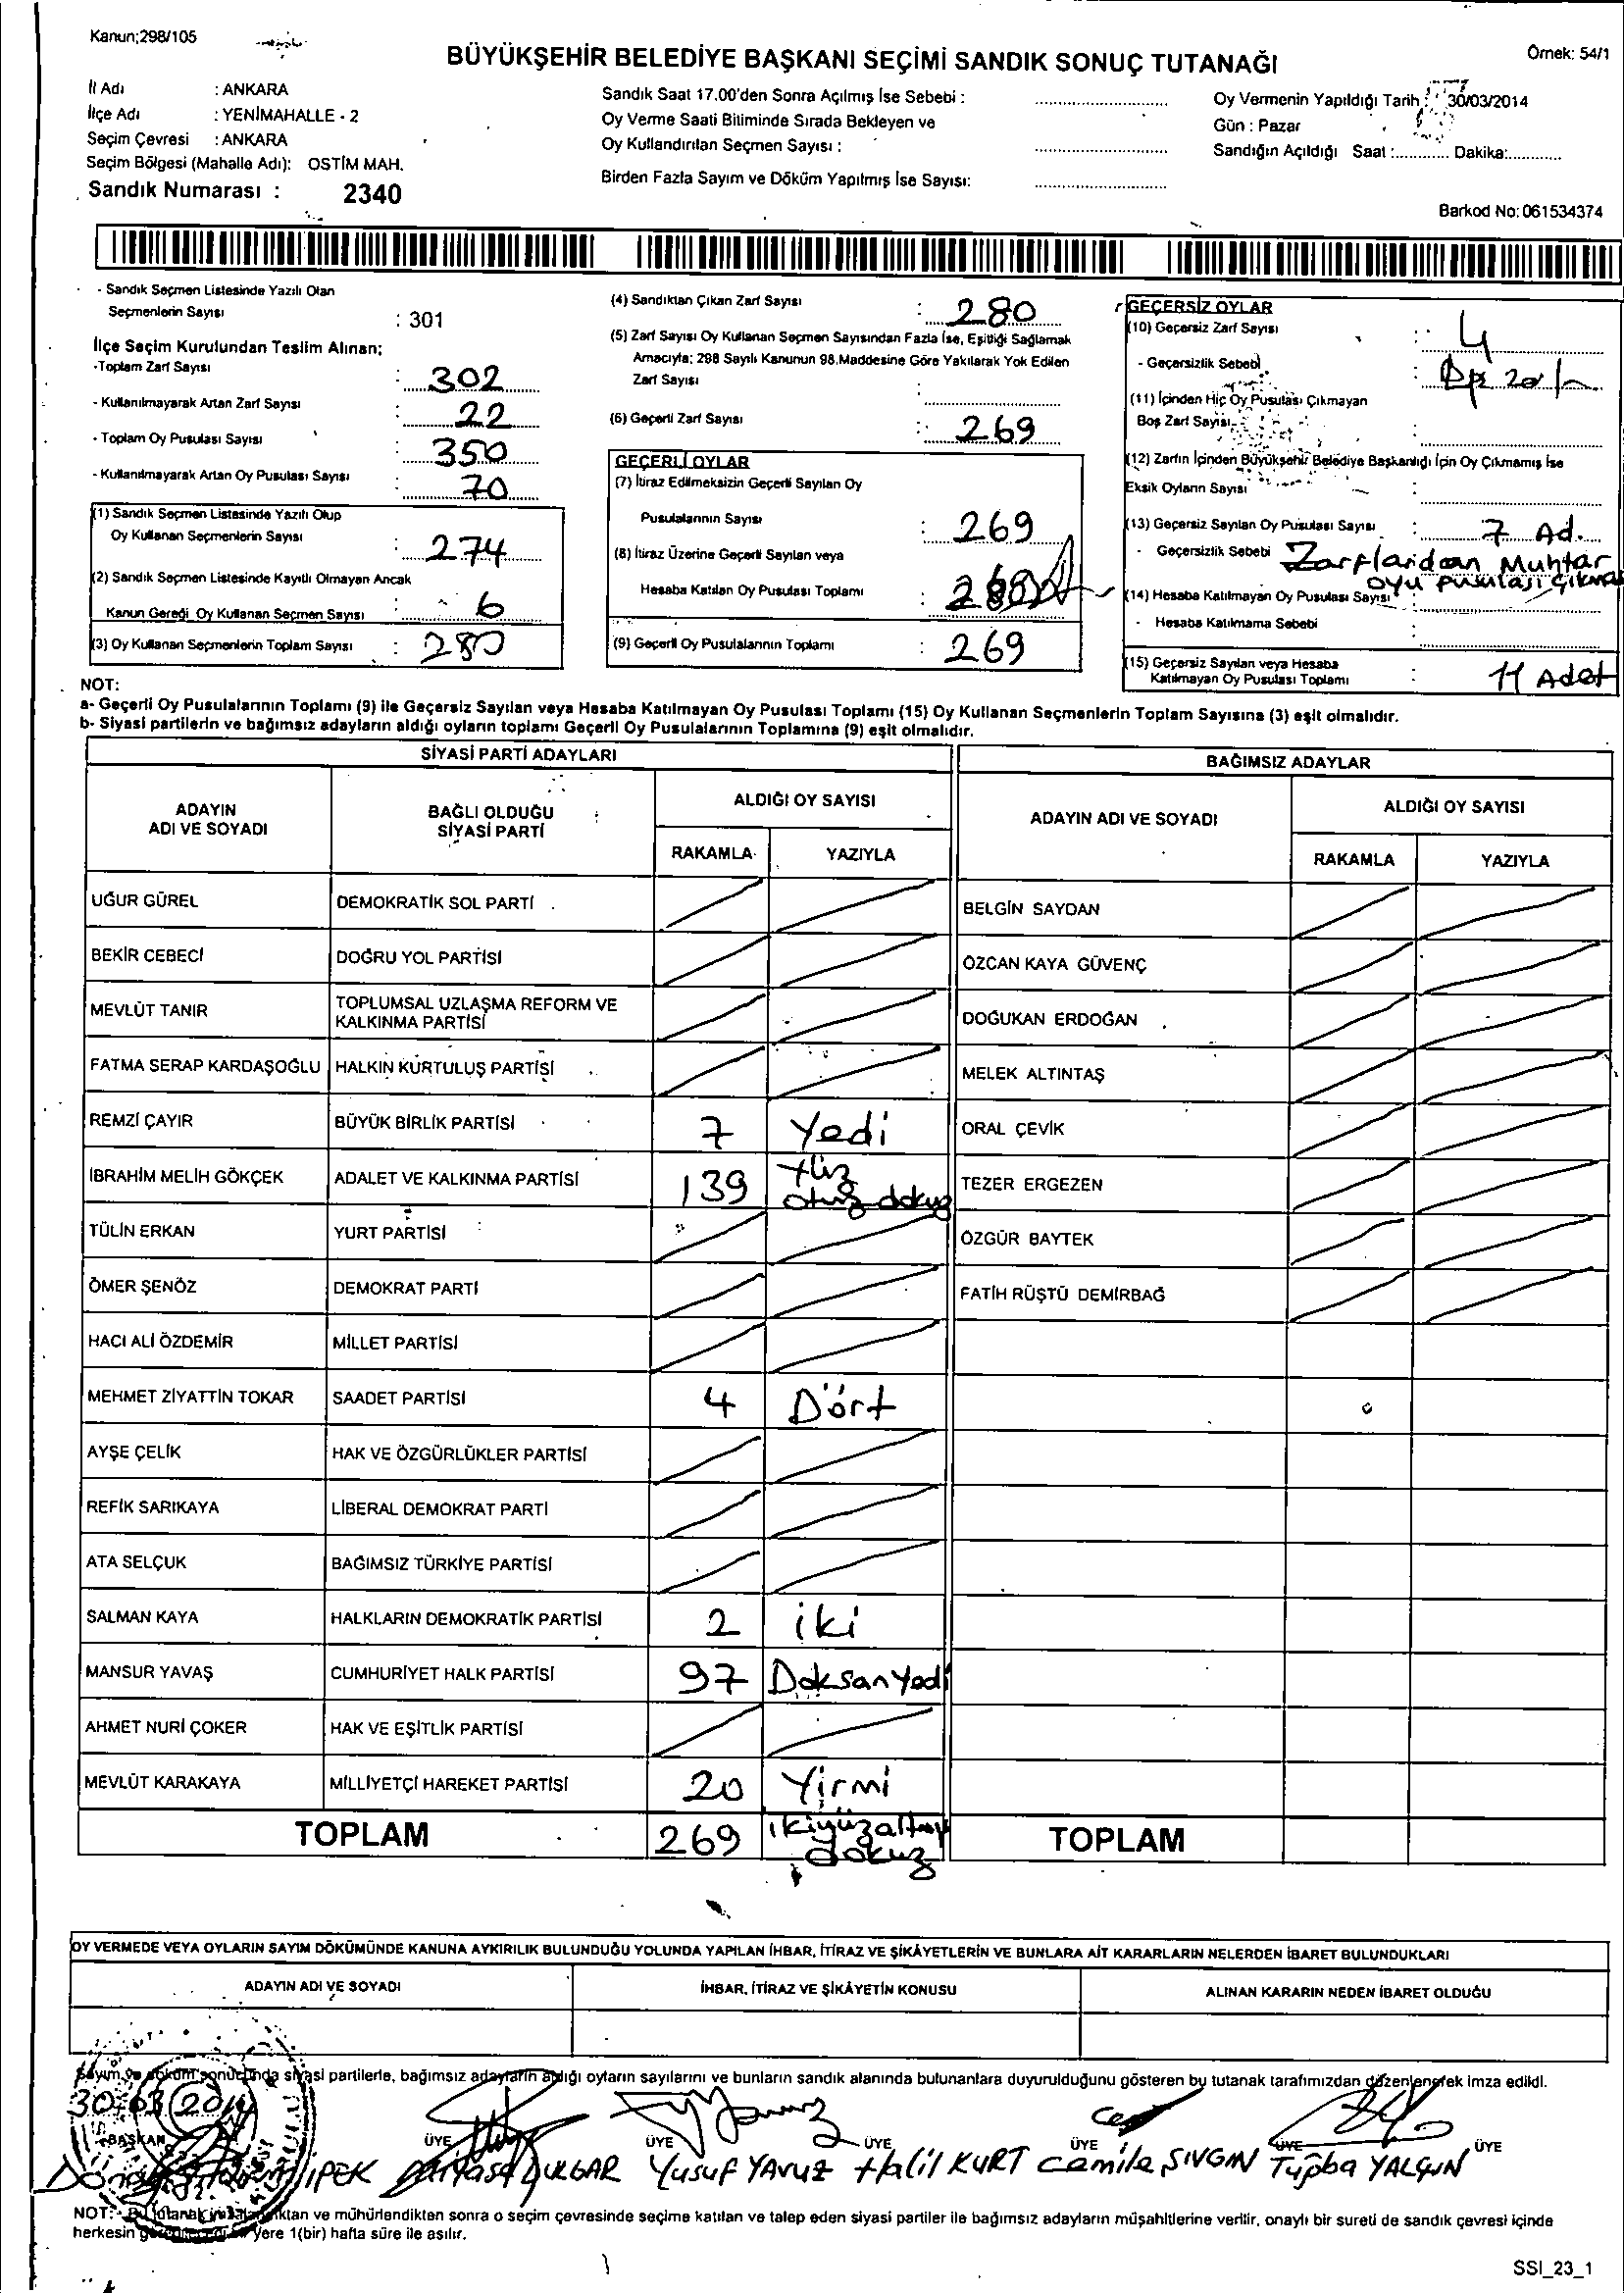 Kanun;298/105
BÜYÜKŞEHİR BELEDİYE BAŞKANI SEÇİMİ SANDIK SONUÇ TUTANAĞI
Örnek: 54/1
İl Adı : ANKARA
İlçe Adı : YENİMAHALLE - 2
Seçim Çevresi : ANKARA
Seçim Bölgesi (Mahalle Adı): OSTİM MAH.
Sandık Numarası : 2340
Sandık Saat 17.00'den Sonra Açılmış İse Sebebi :
Oy Verme Saati Bitiminde Sırada Bekleyen ve
Oy Kullandırılan Seçmen Sayısı :
Birden Fazla Sayım ve Döküm Yapılmış İse Sayısı:
Oy Vermenin Yapıldığı Tarih : 30/03/2014
Gün : Pazar
Sandığın Açıldığı Saat :............ Dakika:............
Barkod No: 061534374
- Sandık Seçmen Listesinde Yazılı Olan
Seçmenlerin Sayısı : 301
İlçe Seçim Kurulundan Teslim Alınan;
-Toplam Zarf Sayısı : 302
- Kullanılmayarak Artan Zarf Sayısı : 22
- Toplam Oy Pusulası Sayısı : 350
- Kullanılmayarak Artan Oy Pusulası Sayısı : 70
(1) Sandık Seçmen Listesinde Yazılı Olup
Oy Kullanan Seçmenlerin Sayısı : 274
(2) Sandık Seçmen Listesinde Kayıtlı Olmayan Ancak
Kanun Gereği Oy Kullanan Seçmen Sayısı : 6
(3) Oy Kullanan Seçmenlerin Toplam Sayısı : 280
(4) Sandıktan Çıkan Zarf Sayısı : 280
(5) Zarf Sayısı Oy Kullanan Seçmen Sayısından Fazla İse, Eşitliği Sağlamak
Amacıyla; 298 Sayılı Kanunun 98.Maddesine Göre Yakılarak Yok Edilen
Zarf Sayısı :
(6) Geçerli Zarf Sayısı : 269
GEÇERLİ OYLAR
(7) İtiraz Edilmeksizin Geçerli Sayılan Oy
Pusulalarının Sayısı : 269
(8) İtiraz Üzerine Geçerli Sayılan veya
Hesaba Katılan Oy Pusulası Toplamı :
(9) Geçerli Oy Pusulalarının Toplamı : 269
GEÇERSİZ OYLAR
(10) Geçersiz Zarf Sayısı : 4
- Geçersizlik Sebebi :
(11) İçinden Hiç Oy Pusulası Çıkmayan
Boş Zarf Sayısı :
(12) Zarfın İçinden Büyükşehir Belediye Başkanlığı İçin Oy Çıkmamış İse
Eksik Oyların Sayısı :
(13) Geçersiz Sayılan Oy Pusulası Sayısı : 7 Ad.
- Geçersizlik Sebebi Zarflardan Muhtar
oyu pusulası çıkması
(14) Hesaba Katılmayan Oy Pusulası Sayısı :
- Hesaba Katılmama Sebebi :
(15) Geçersiz Sayılan veya Hesaba
Katılmayan Oy Pusulası Toplamı : 11 Adet
NOT:
a- Geçerli Oy Pusulalarının Toplamı (9) ile Geçersiz Sayılan veya Hesaba Katılmayan Oy Pusulası Toplamı (15) Oy Kullanan Seçmenlerin Toplam Sayısına (3) eşit olmalıdır.
b- Siyasi partilerin ve bağımsız adayların aldığı oyların toplamı Geçerli Oy Pusulalarının Toplamına (9) eşit olmalıdır.
SİYASİ PARTİ ADAYLARI
ADAYIN ADI VE SOYADI
BAĞLI OLDUĞU SİYASİ PARTİ
ALDIĞI OY SAYISI
RAKAMLA YAZIYLA
UĞUR GÜREL DEMOKRATİK SOL PARTİ
BEKİR CEBECİ DOĞRU YOL PARTİSİ
MEVLÜT TANIR TOPLUMSAL UZLAŞMA REFORM VE
KALKINMA PARTİSİ
FATMA SERAP KARDAŞOĞLU HALKIN KURTULUŞ PARTİSİ
REMZİ ÇAYIR BÜYÜK BİRLİK PARTİSİ 7 Yedi
İBRAHİM MELİH GÖKÇEK ADALET VE KALKINMA PARTİSİ 139 Yüz
otuz dokuz
TÜLİN ERKAN YURT PARTİSİ
ÖMER ŞENÖZ DEMOKRAT PARTİ
HACI ALİ ÖZDEMİR MİLLET PARTİSİ
MEHMET ZİYATTİN TOKAR SAADET PARTİSİ 4 Dört
AYŞE ÇELİK HAK VE ÖZGÜRLÜKLER PARTİSİ
REFİK SARIKAYA LİBERAL DEMOKRAT PARTİ
ATA SELÇUK BAĞIMSIZ TÜRKİYE PARTİSİ
SALMAN KAYA HALKLARIN DEMOKRATİK PARTİSİ 2 iki
MANSUR YAVAŞ CUMHURİYET HALK PARTİSİ 97 Doksan Yedi
AHMET NURİ ÇOKER HAK VE EŞİTLİK PARTİSİ
MEVLÜT KARAKAYA MİLLİYETÇİ HAREKET PARTİSİ 20 Yirmi
TOPLAM 269 ikiyüzaltmış
dokuz
BAĞIMSIZ ADAYLAR
ADAYIN ADI VE SOYADI
ALDIĞI OY SAYISI
RAKAMLA YAZIYLA
BELGİN SAYDAN
ÖZCAN KAYA GÜVENÇ
DOĞUKAN ERDOĞAN
MELEK ALTINTAŞ
ORAL ÇEVİK
TEZER ERGEZEN
ÖZGÜR BAYTEK
FATİH RÜŞTÜ DEMİRBAĞ
TOPLAM
OY VERMEDE VEYA OYLARIN SAYIM DÖKÜMÜNDE KANUNA AYKIRILIK BULUNDUĞU YOLUNDA YAPILAN İHBAR, İTİRAZ VE ŞİKÂYETLERİN VE BUNLARA AİT KARARLARIN NELERDEN İBARET BULUNDUKLARI
ADAYIN ADI VE SOYADI
İHBAR, İTİRAZ VE ŞİKÂYETİN KONUSU
ALINAN KARARIN NEDEN İBARET OLDUĞU
Sayım ve döküm sonucunda siyasi partilerle, bağımsız adayların aldığı oyların sayılarını ve bunların sandık alanında bulunanlara duyurulduğunu gösteren bu tutanak tarafımızdan düzenlenerek imza edildi.
30/03/2014
BAŞKAN ÜYE ÜYE ÜYE ÜYE ÜYE ÜYE
İPEK Yusuf YAVUZ Halil KURT Cemile SIVGIN Tuğba YALÇIN
NOT:- Bu tutanak imzalandıktan ve mühürlendikten sonra o seçim çevresinde seçime katılan ve talep eden siyasi partiler ile bağımsız adayların müşahitlerine verilir, onaylı bir sureti de sandık çevresi içinde
herkesin görebileceği bir yere 1(bir) hafta süre ile asılır.
SSI_23_1